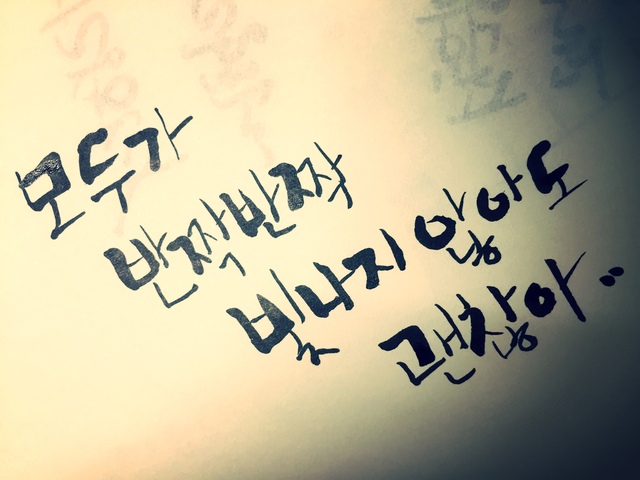 모두가
반짝반짝
빛나지 않아도
괜찮아..